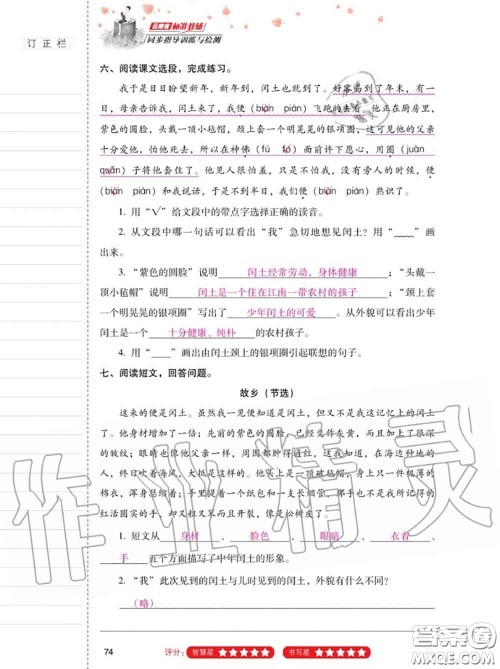 订正栏
云南省标准教辅
同步指导训练与检测
六、阅读课文选段，完成练习。
我于是日日盼望新年，新年到，闰土也就到了。好容易到了年末，有一
日，母亲告诉我，闰土来了，我便（biàn pián）飞跑的去看。他正在厨房里，
紫色的圆脸，头戴一顶小毡帽，颈上套一个明晃晃的银项圈，这可见他的父亲
十分爱他，怕他死去，所以在神佛（fú fó）面前许下愿心，用圈（juàn
quān）子将他套住了。他见人很怕羞，只是不怕我，没有旁人的时候，便
（biàn pián）和我说话，于是不到半日，我们便（biàn pián）熟识了。
1. 用“√”给文段中的带点字选择正确的读音。
2. 从文段中哪一句话可以看出“我”急切地想见闰土？用“﹏﹏”画
出来。
3. “紫色的圆脸”说明 闰土经常劳动，身体健康 ；“头戴一
顶小毡帽”说明 闰土是一个住在江南一带农村的孩子 ；“颈上套
一个明晃晃的银项圈”写出了 少年闰土的可爱 。从外貌可以看出少年
闰土是一个 十分健康、纯朴 的农村孩子。
4. 用“____”画出由闰土颈上的银项圈引起联想的句子。
七、阅读短文，回答问题。
故乡（节选）
这来的便是闰土。虽然我一见便知道是闰土，但又不是我这记忆上的闰土
了。他身材增加了一倍；先前的紫色的圆脸，已经变作灰黄，而且加上了很深
的皱纹；眼睛也像他父亲一样，周围都肿得通红，这我知道，在海边种地的
人，终日吹着海风，大抵是这样的。他头上是一顶破毡帽，身上只一件极薄的
棉衣，浑身瑟缩着；手里提着一个纸包和一支长烟管，那手也不是我所记得的
红活圆实的手，却又粗又笨而且开裂，像是松树皮了。
1. 短文从 身材 、 脸色 、 眼睛 、 衣着 、
手 五个方面描写了中年闰土的形象。
2. “我”此次见到的闰土与儿时见到的闰土，外貌有什么不同？
（略）
74 评分：智慧星 ★★★★★ 书写星 ★★★★★
作业精灵